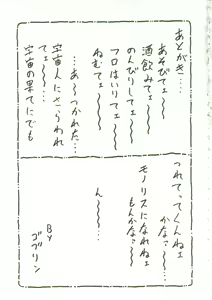 あとがき…
あそびてェ〜〜〜
酒飲みてェ〜〜〜
のんびりしてェ〜〜〜
フロはいりてェ〜〜〜
ねむてェ〜〜〜
…あ〜つかれた…
宇宙人にさらわれ
てェ〜〜…
宇宙の果てにでも
つれてってくんねェ
かな〜〜〜
モノリスになれねェ
もんかな〜〜〜
ん〜〜〜…
BY
ゴブリン